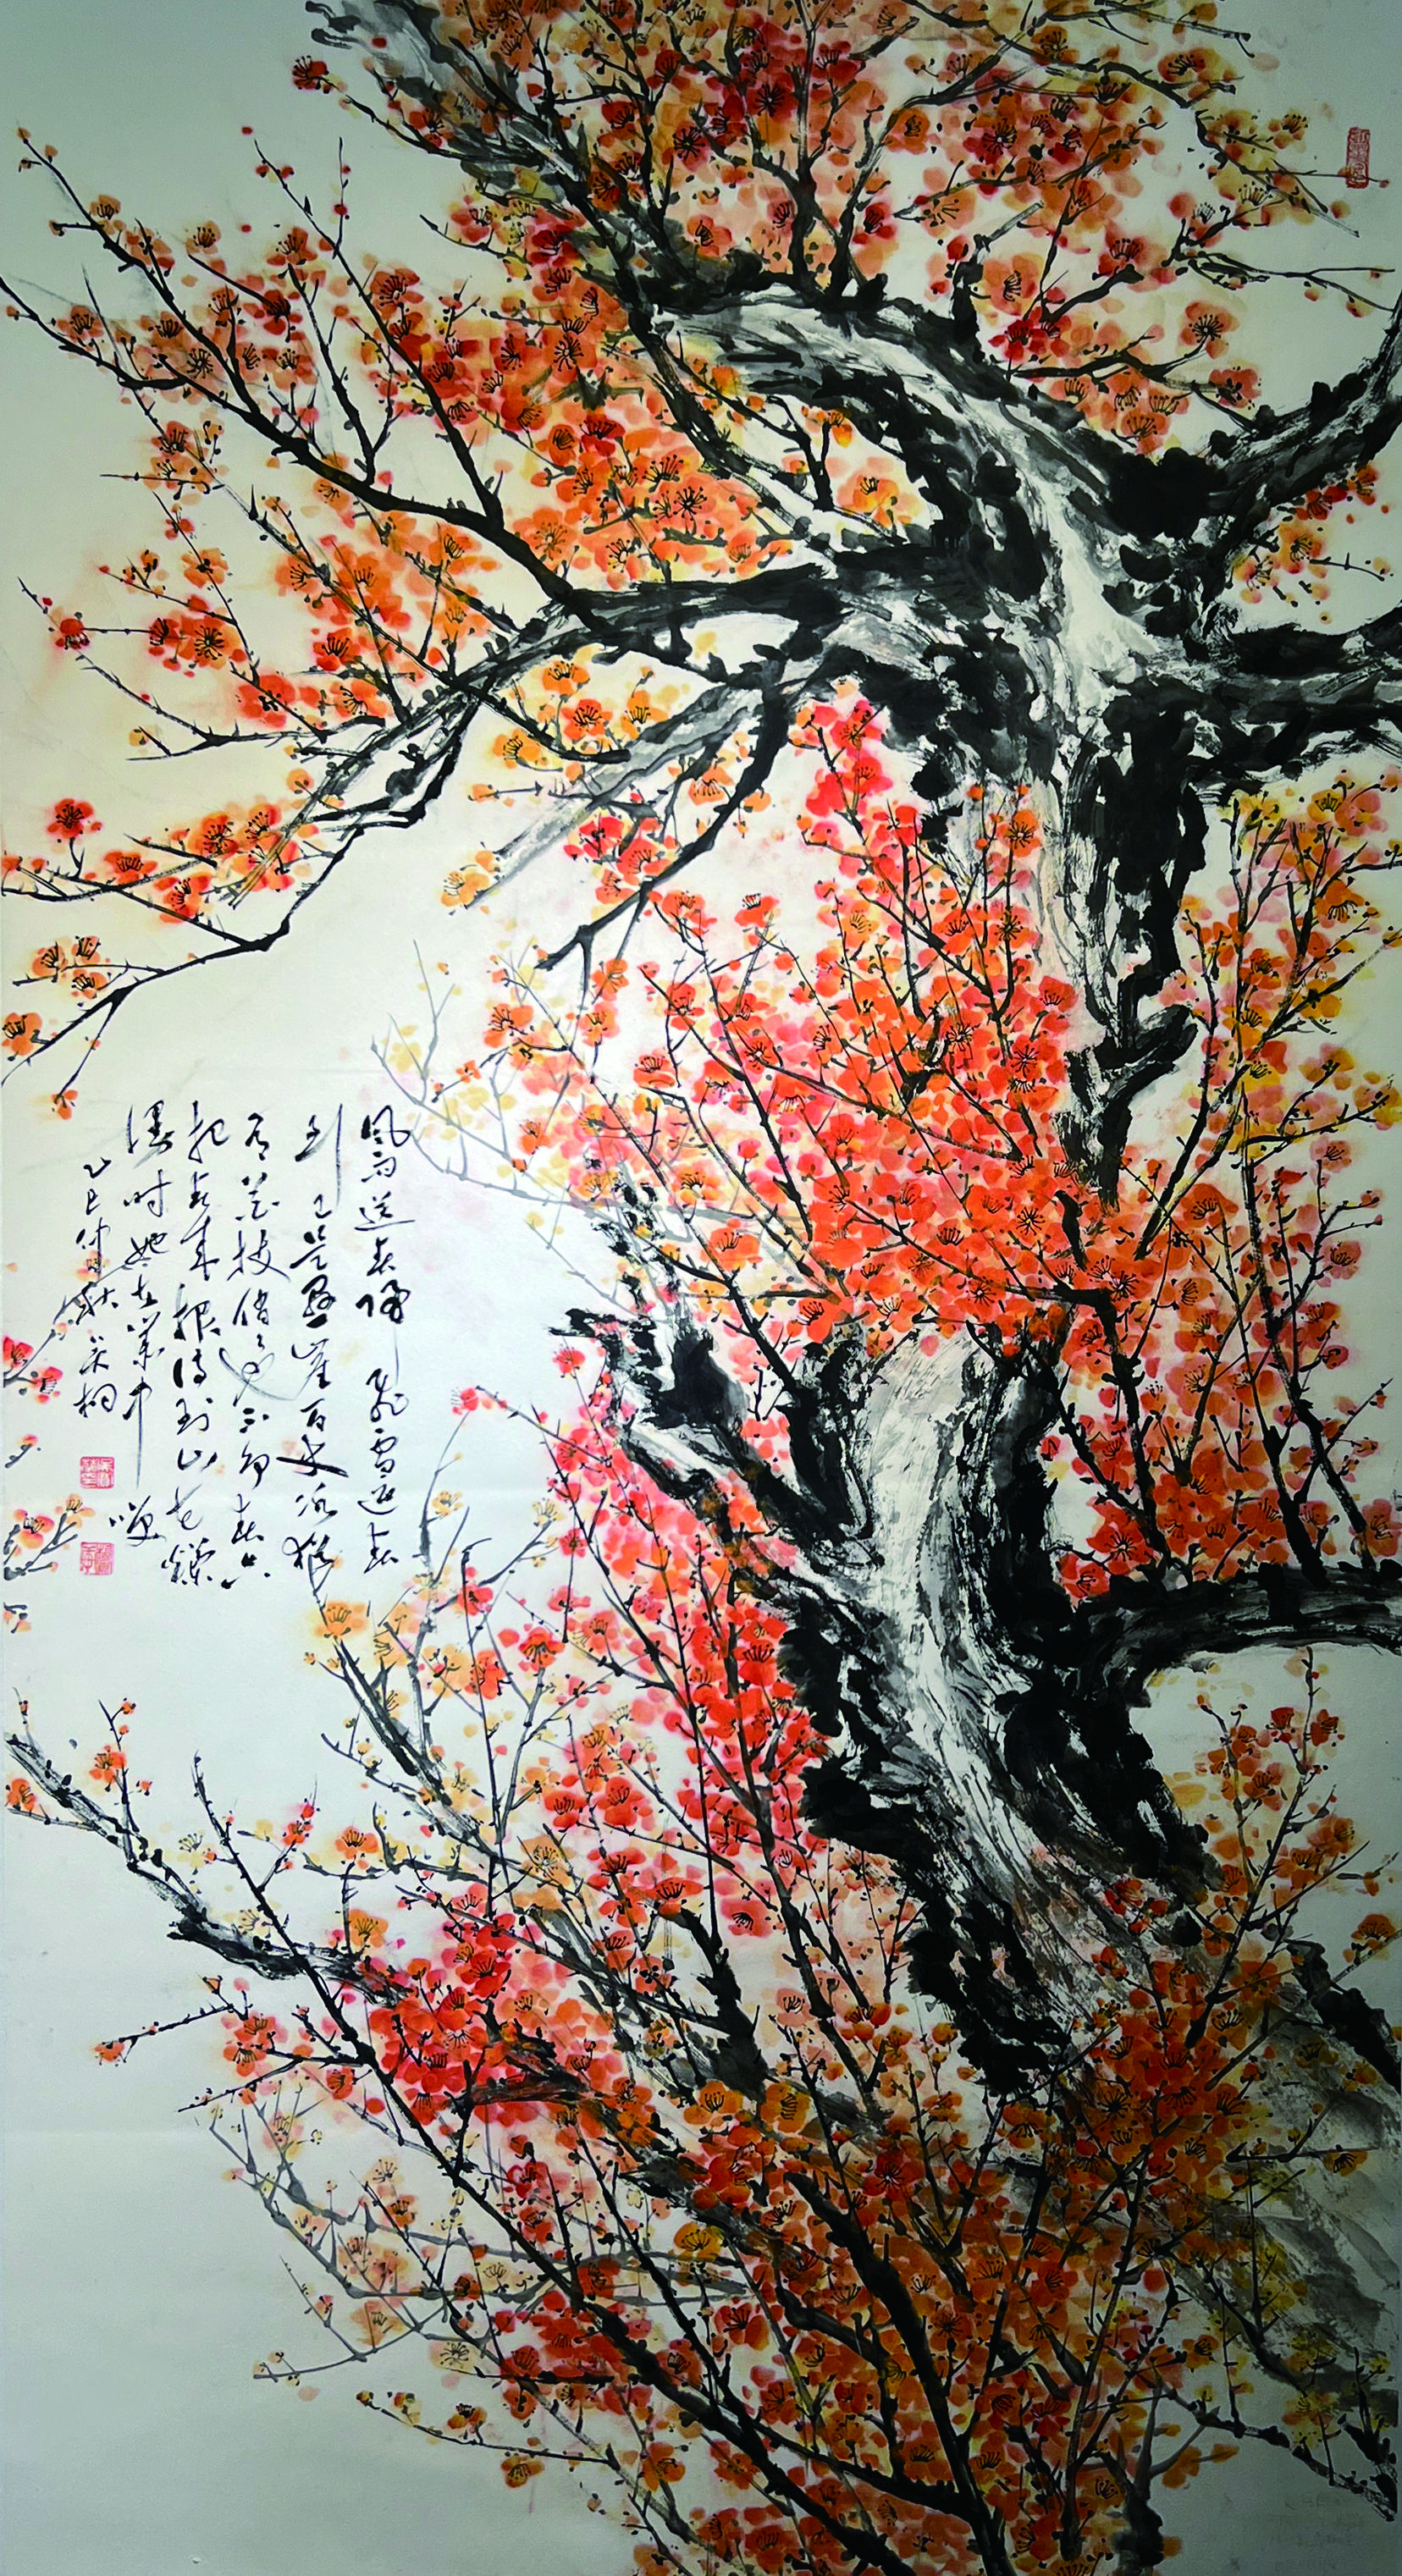 风雨送春归飞雪迎春
到已是悬崖百丈冰犹
有花枝俏俏不争春只
把春来报待到山花烂
漫时她在丛中笑
乙巳仲秋